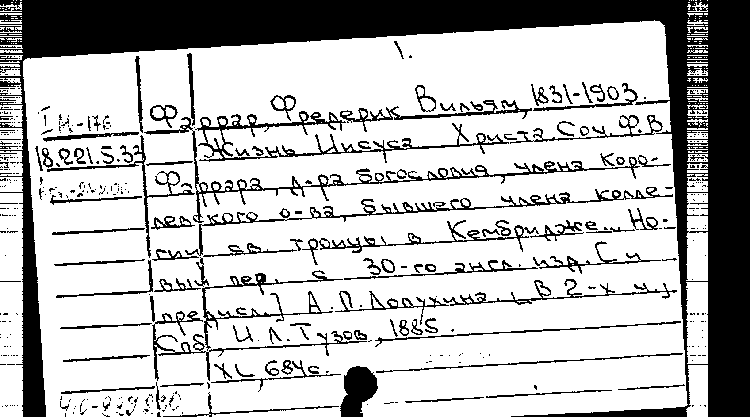 1.
Фаррар, Фредерик Вильям, 1831-1903.
I М-176
18.221.5.33
Жизнь Иисуса Христа Соч. Ф.В.
Фаррара, д-ра богословия, члена Коро-
левского о-ва, бывшего члена колле-
гии св. троицы в Кембридже... Но-
вый пер. с 30-го англ. изд. [и
предисл.] А.П. Лопухина. [В 2-х ч.].
Спб, И.Л. Тузов, 1885.
XL, 684с.